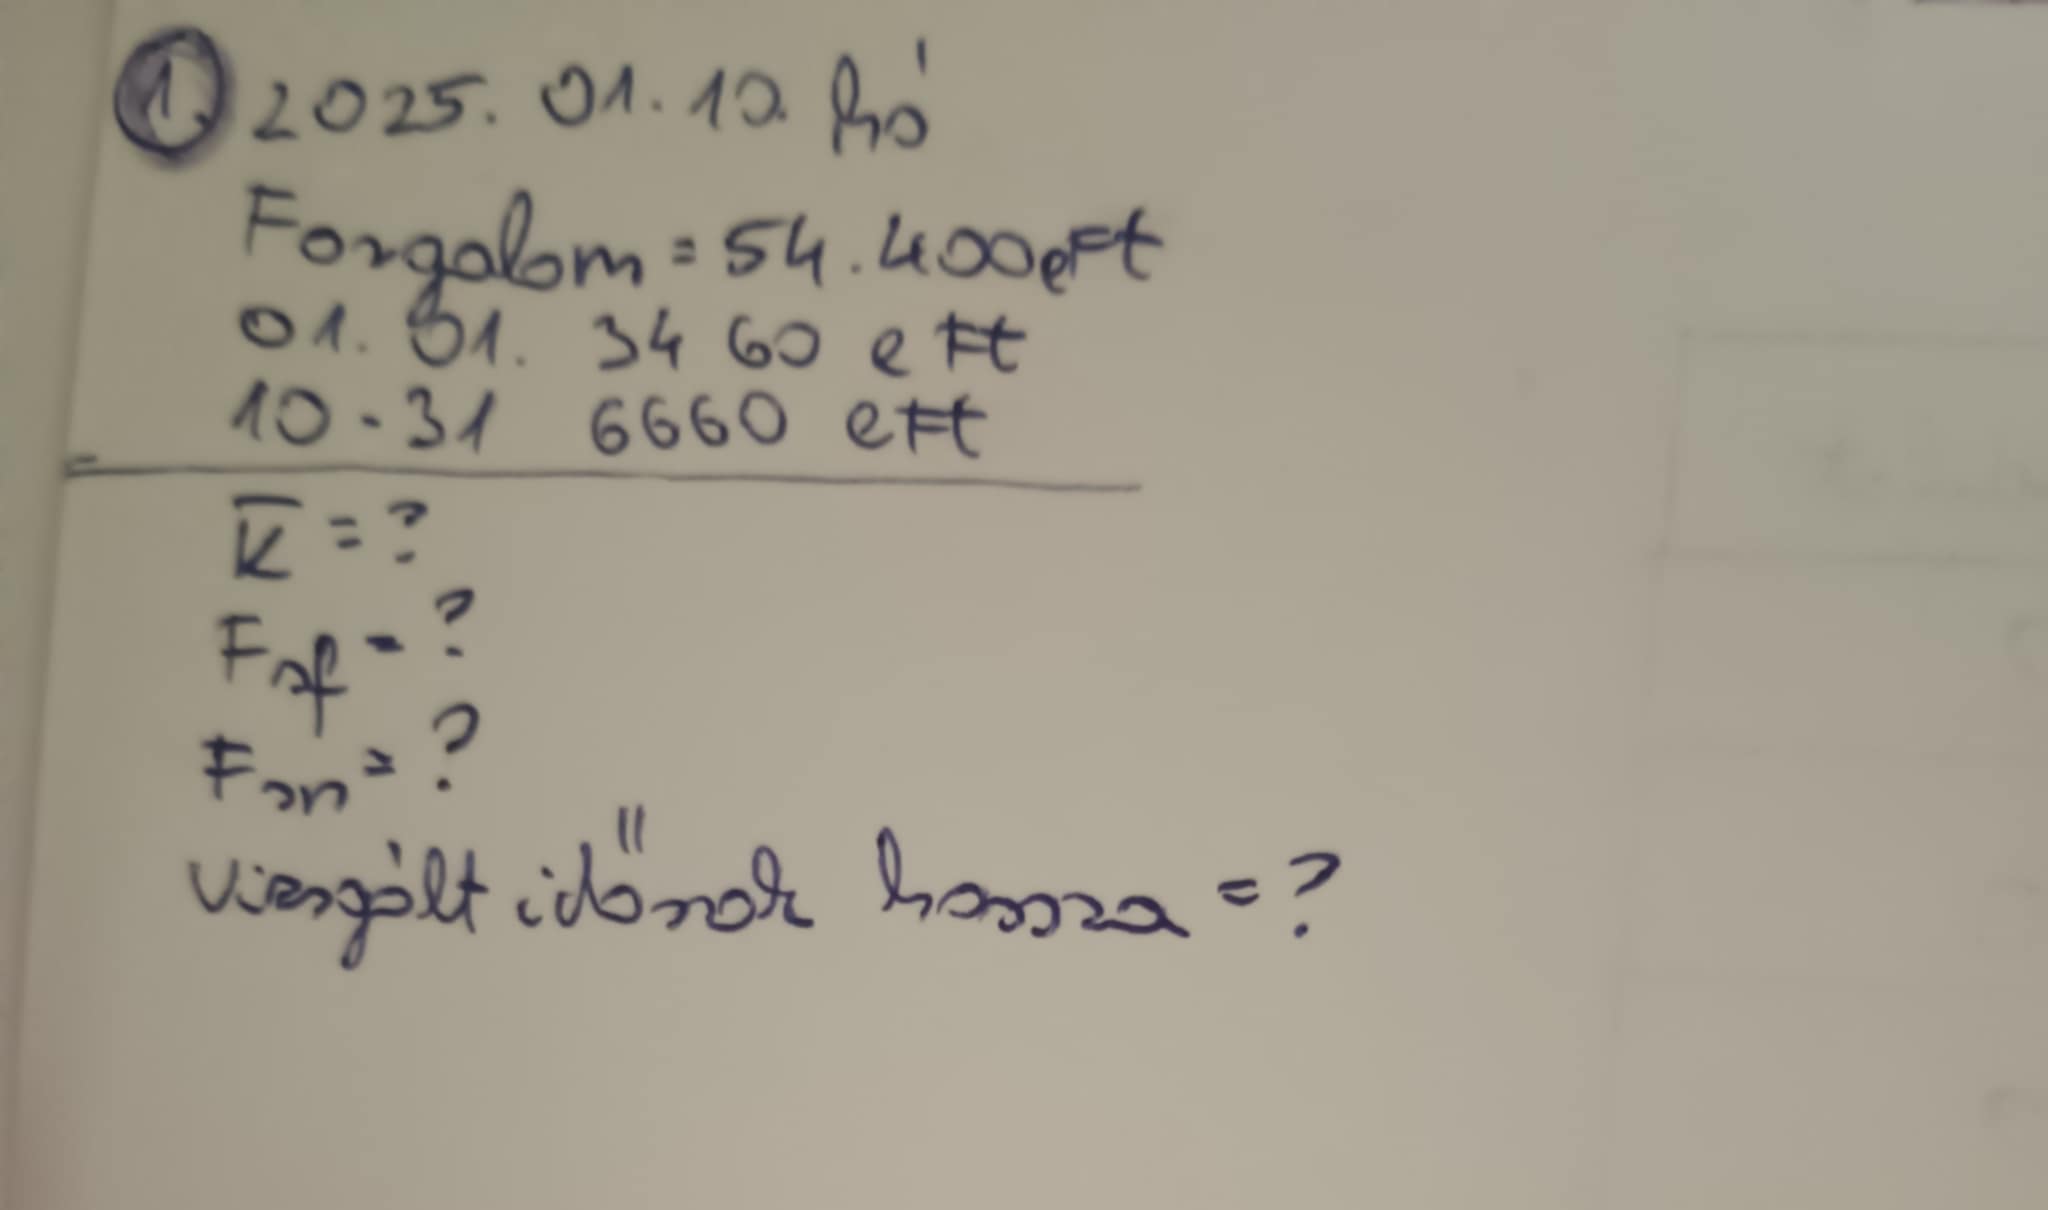 1. 2025. 01.10. hó
Forgalom = 54.400eFt
01. 01. 3460 eFt
10-31 6660 eFt
K = ?
Fsf = ?
Fsn = ?
vizsgált időszak hossza = ?